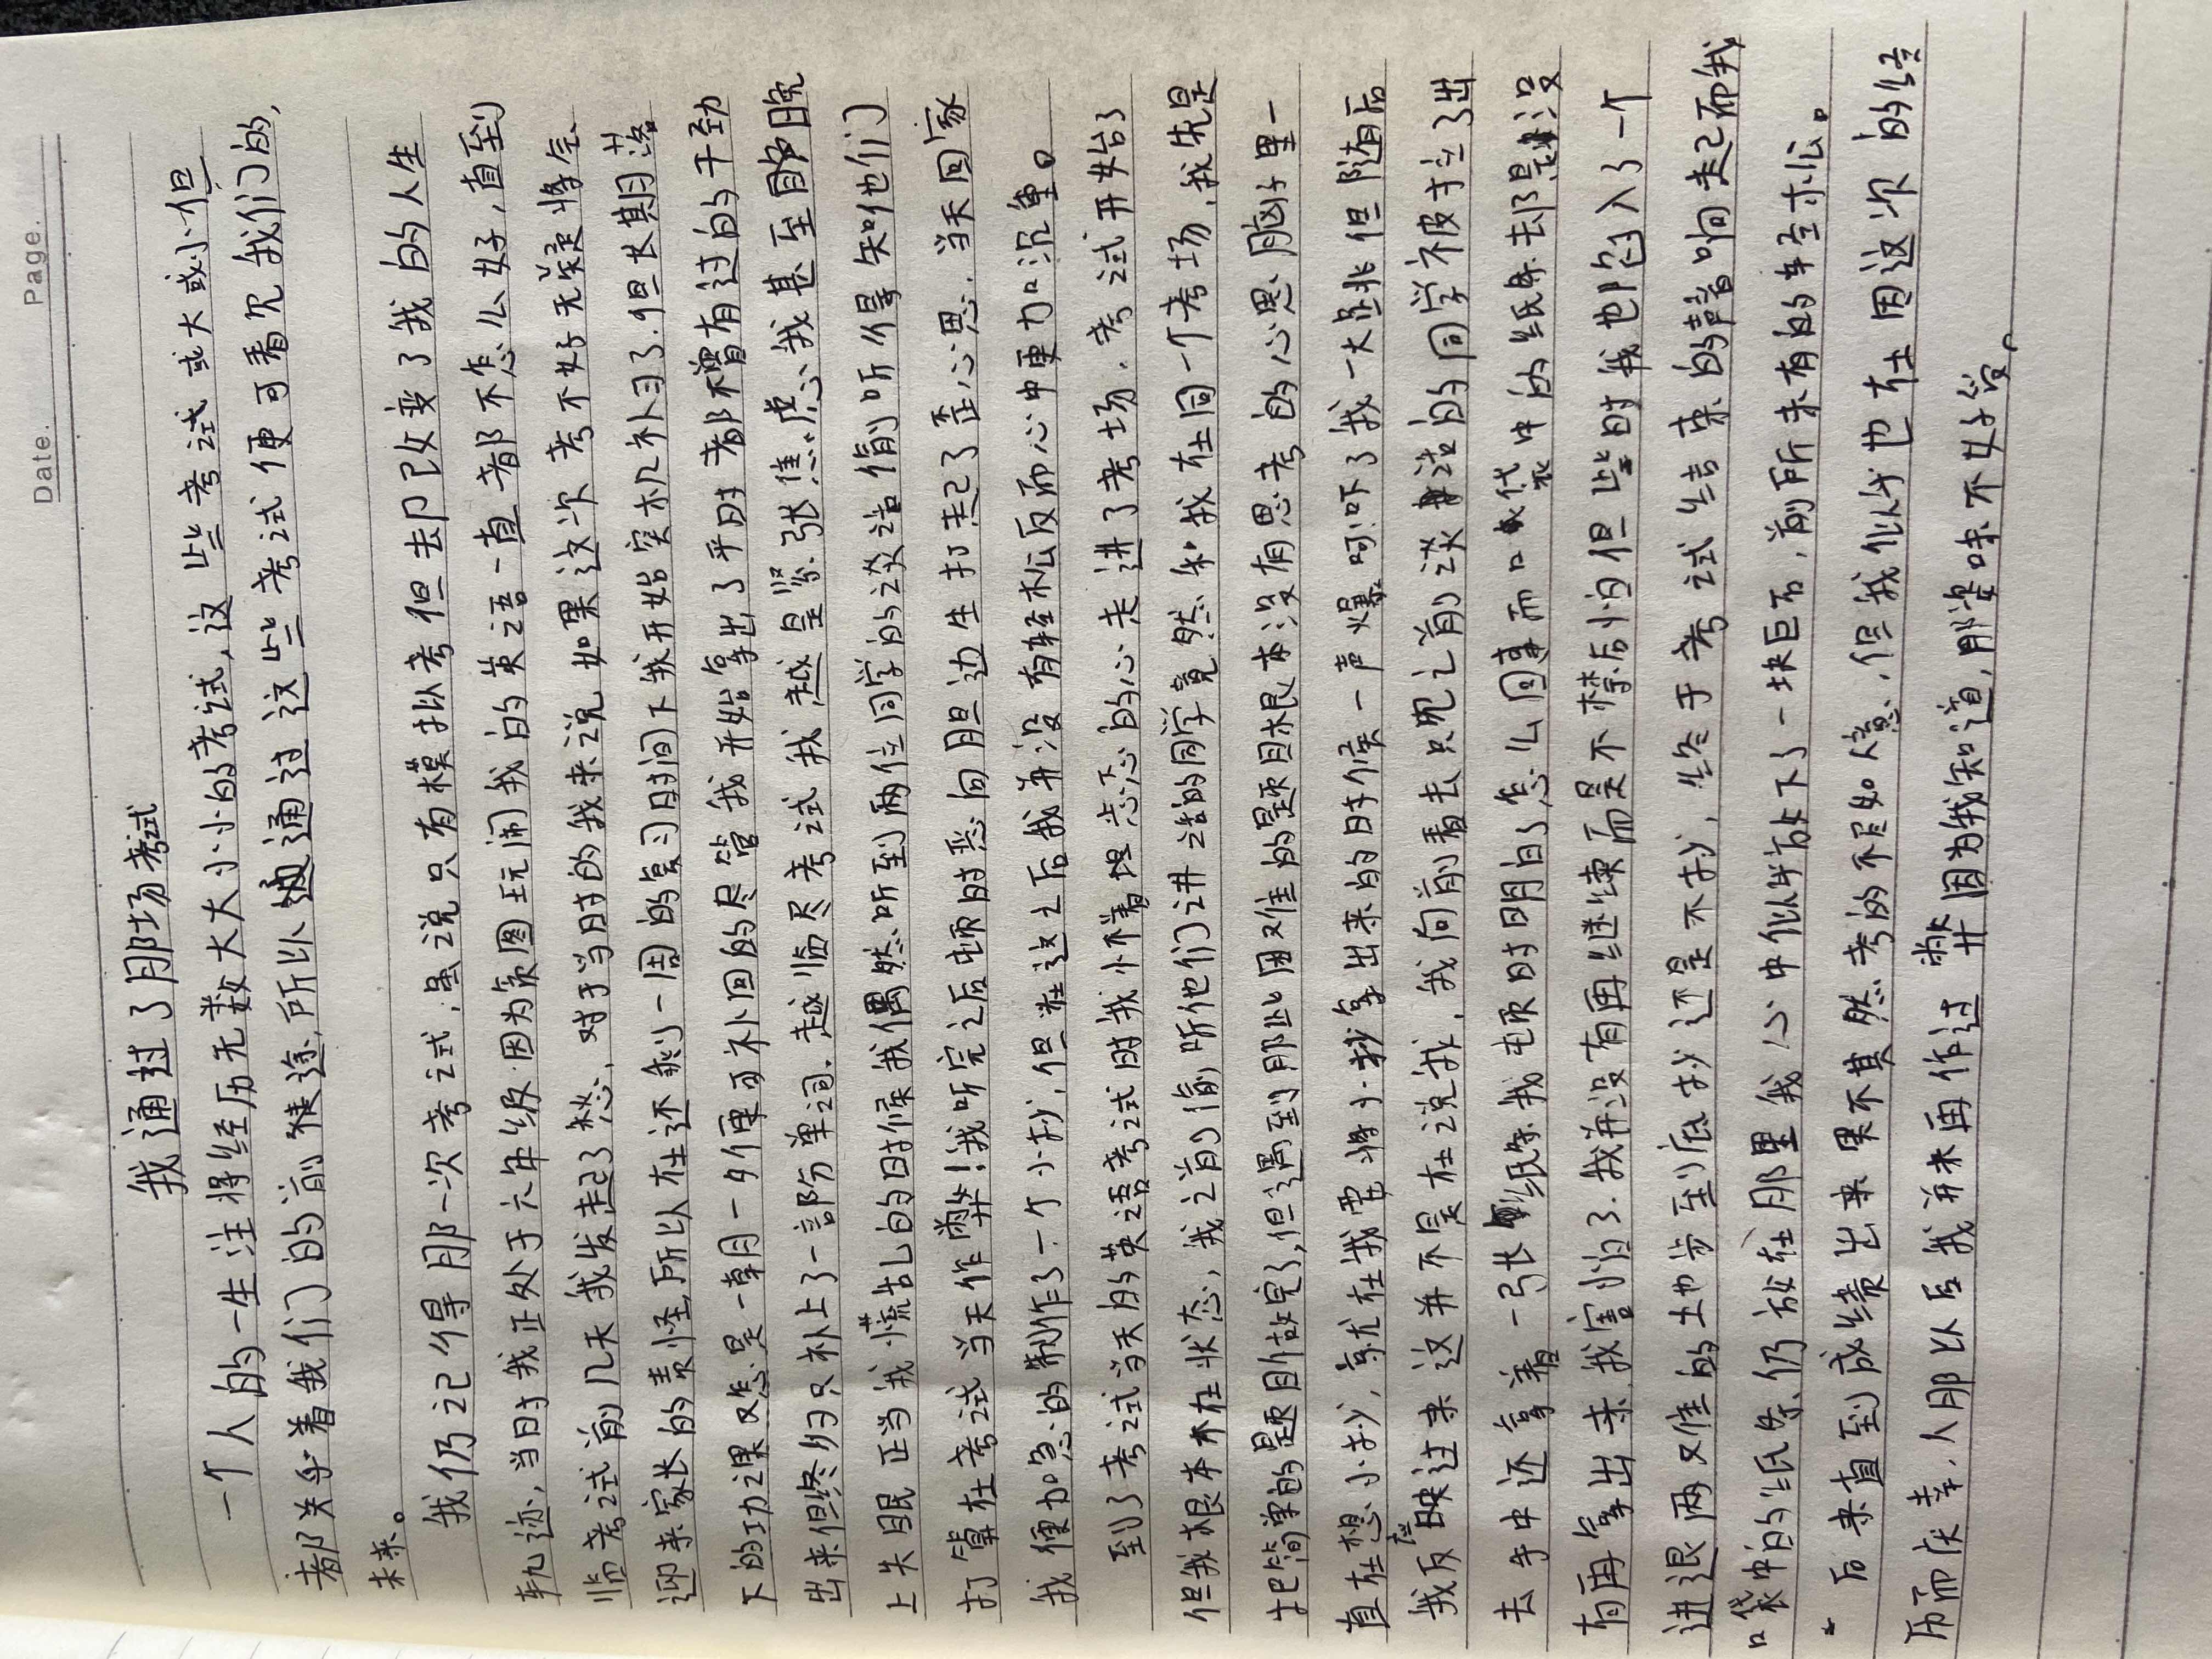 Date.
Page.
我通过了那场考试
一个人的一生注将经历无数大大小小的考试,这些考试或大或小但
都关乎着我们的前途,所以通过这些考试便可看见我们的,
未来。
我仍记得那一次考试,虽说只有模拟考但去卩改变了我的人生
轨迹,当时我正处于六年级.因为贪图玩闹我的英语一直都不怎么好,直到
临考试前几天我发起了愁,对于当时的我来说如果这次考不好无疑将会
迎来家长的责怪,所以在还剩一周的复习时间下我开始突机补习了.但长期落
下的功课又怎是一朝一夕便可补回的尽管我开始拿出了平时都不曾有过的干劲
出来但终归只补上了一部份单词.越临尽考试我越是紧张焦虑,我甚至那晚
上失眠正当我慌乱的时候我偶然听到两位同学的谈话偷听得知他们
打算在考试当天作弊!我听完之后顿时恶向胆边生打起了歪心思.当天回家
我便加急的制作了一个小抄,但在这之后我并没有轻松反而心中更加沉重。
到了考试当天的英语考试时我怀着忐忑的心走进了考场.考试开始了
但我根本不在状态,我之前偷听他们讲话的同学竟然和我在同一个考场,我先是
把简单的题目做完了,但遇到那些困难的题目根本没有思考的心思脑子里一
直在想小抄,就在我要将小抄拿出来的时候一声爆呵吓了我一大跳但随后
我反应过来这并不是在说我,我向前看去只见之前谈话的同学被拉了出
去手中还拿着一张纸条我顿时明白了怎么回事而口袋中的纸条却是没
有再拿出来,我害怕了.我并没有再继续而是不禁后怕但些时我也陷入了一个
进退两难的地步到底抄还是不抄,终于考试结束的声音响起而我
口袋中的纸条仍放在那里我心中似乎放下了一块巨石,前所未有的轻松。
后来直到成绩出来果不其然考的不尽如人意,但我似乎也在因这次的经
历而庆幸,人那以后我并未再作过弊因为我知道,那滋味不好受。